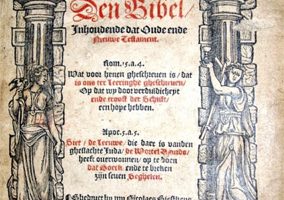 Den Bibel/
Inhoudende dat Oude ende
Nieuwe Testament.
Rom. 15. a. 4.
Wat voor henen gheschreven is / dat
is ons ter Leeringhe gheschreven/
Op dat wy door verduldicheyt
ende troost der Schrift/
een hope hebben.
Apoc. 5. a. 5.
Siet / de Leeuwe / die daer is vanden
gheslachte Juda / de Wortel Davids/
heeft overwonnen / op te doen
dat Boeck ende te breken
zijn seven Seghelen.
Ghedruct by my Nicolaes